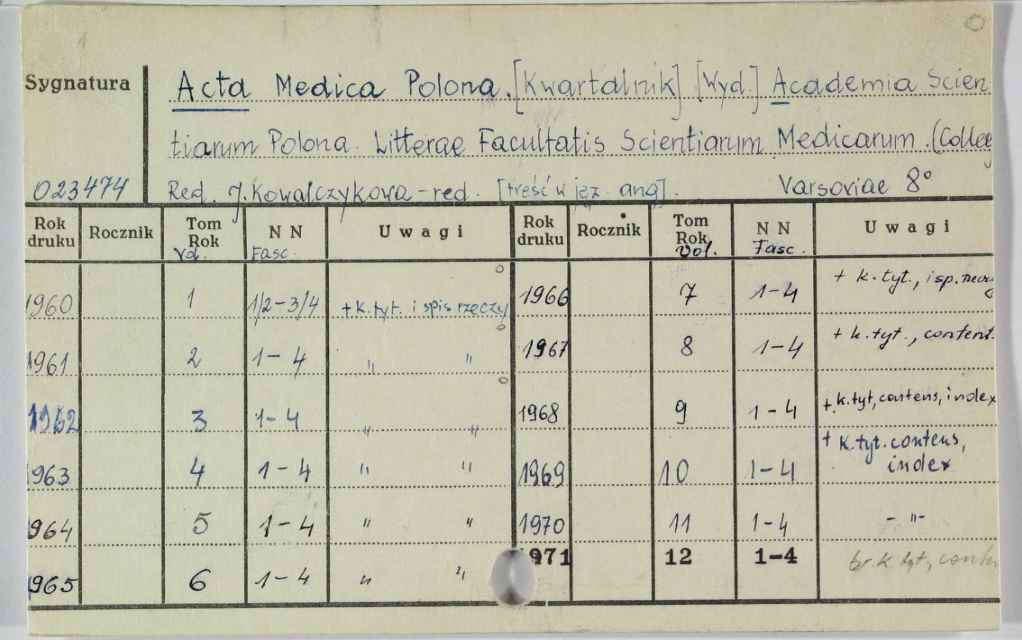 Sygnatura
Acta Medica Polona. [Kwartalnik] [Wyd.] Academia Scien
tiarum Polona. Litterae Facultatis Scientiarum Medicarum. (Colleg
023474 Red. J. Kowalczykowa - red. [treść w jęz. ang]. Varsoviae 8°
Rok druku Rocznik Tom Rok Vol. NN Fasc. Uwagi Rok druku Rocznik Tom Rok Vol. NN Fasc. Uwagi
1960 1 1/2-3/4 + k. tyt. i spis rzeczy 1966 7 1-4 + k. tyt., i sp.
1961 2 1-4 " " 1967 8 1-4 + k. tyt., content.
1962 3 1-4 " " 1968 9 1-4 + k. tyt, contens, index
1963 4 1-4 " " 1969 10 1-4 + k. tyt. contens, index
1964 5 1-4 " " 1970 11 1-4 - " -
1965 6 1-4 " " 971 12 1-4 k. tyt,